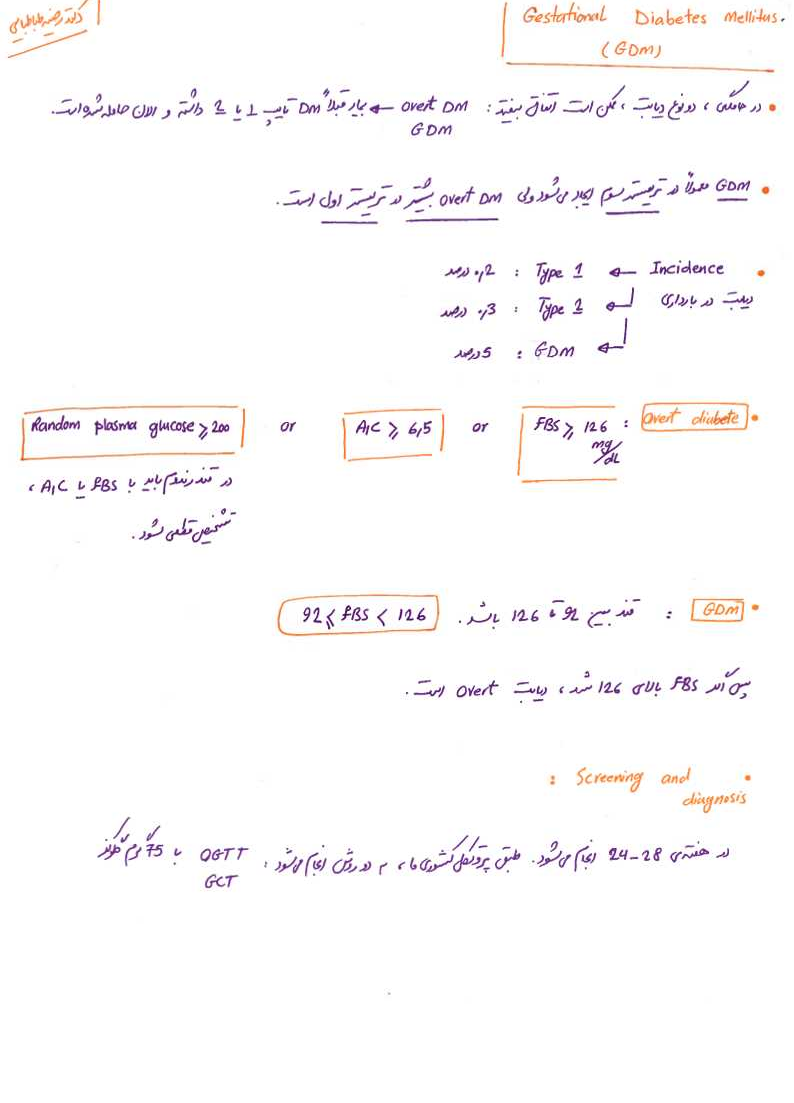 دکتر رضیه طباطبایی
Gestational Diabetes Mellitus.
(GDM)
• در حاملگی ، دو نوع دیابت ، ممکن است اتفاق بیفتد : overt DM ← بیمار قبلاً DM تایپ 1 یا 2 داشته و الان حامله شده است.
GDM
• GDM معمولاً در تریمستر سوم ایجاد می‌شود ولی overt DM بیشتر در تریمستر اول است.
• Incidence ← Type 1 : 0,2 درصد
دیابت در بارداری ← Type 2 : 0,3 درصد
← GDM : 5 درصد
• overt diabete : FBS ≥ 126 mg/dL or A1C ≥ 6,5 or Random plasma glucose ≥ 200
در قند رندوم باید با FBS یا A1C ،
تشخیص قطعی شود.
• GDM : قند بین 92 تا 126 باشد. 92 ≤ FBS < 126
پس اگر FBS بالای 126 شد ، دیابت overt است.
• Screening and :
diagnosis
در هفته‌ی 24-28 انجام می‌شود. طبق پروتکل کشوری ما ، به دو روش انجام می‌شود : OGTT با 75 گرم گلوکز
GCT